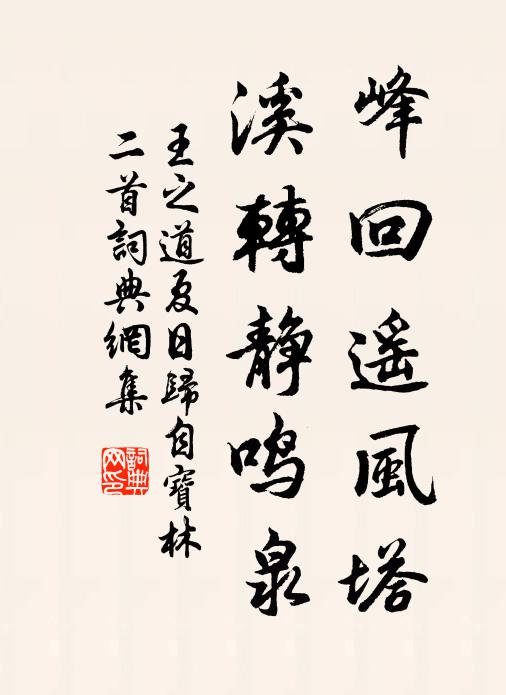 峰回遥風塔
溪轉静鳴泉
王之道夏日歸自寶林
二首詞典網集
詞典网印